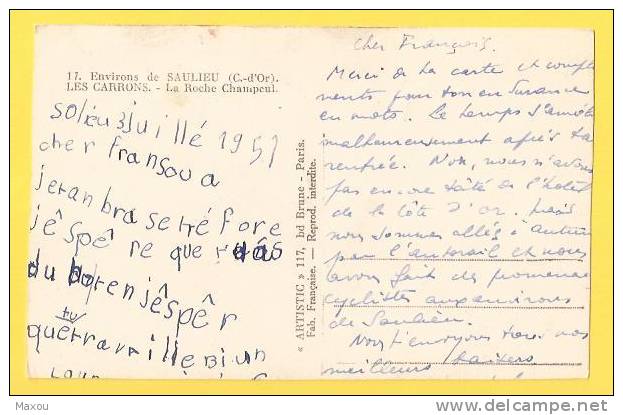 17. Environs de SAULIEU (C.-d'Or).
LES CARRONS. - La Roche Champeul.
soliéu 3 juillé 1951
cher fransoua
jeranbrasetréfore
j'êspêre que
du boten jêspêr
tu
quetravaille Bi un
« ARTISTIC » 117, bd Brune - Paris.
Fab. Française. — Reprod. interdite.
cher François.
Merci de ta carte et compli
ments pour ton en
en mots. Le temps s'améli
malheureusement après ta
rentrée. Non, nous n'avons
pas encore tâté de l'hôtel
de la côte d'or, mais
nous sommes allés à Autun
par l'autorail et nous
avons fait des promenades
cyclistes aux environs
de Saulieu.
Nous t'envoyons tous nos
meilleurs baisers
Maxou
delcampe.net